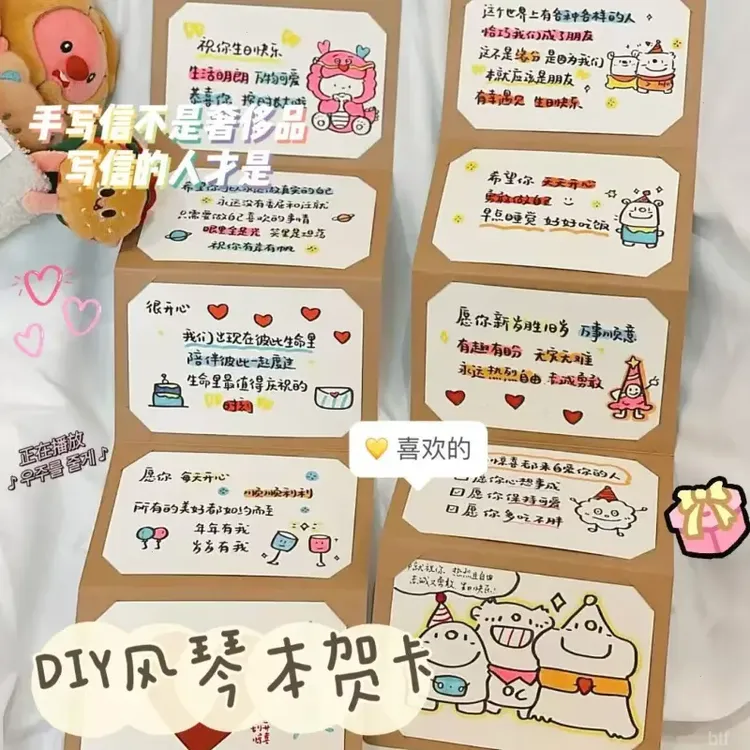 祝你生日快乐
生活明朗 万物可爱
恭喜你
手写信不是奢侈品
写信的人才是
永远没有
只需要做自己喜欢的事情
眼里全是光 笑里是坦荡
祝你有岸有帆
很开心
我们出现在彼此生命里
陪伴彼此一起度过
生命里最值得庆祝的
时刻
愿你 每天开心
顺顺利利
所有的美好都如约而至
年年有我
岁岁有我
这个世界上有各种各样的人
恰巧我们成了朋友
这不是缘分 是因为我们
本就应该是朋友
有幸遇见 生日快乐
希望你 天天开心
勇敢做自己
早点睡觉 好好吃饭
愿你新岁胜旧岁 万事顺意
有趣有盼 无灾无难
永远热烈自由 赤诚勇敢
喜欢的
惊喜都来自爱你的人
愿你心想事成
愿你保持可爱
愿你多吃不胖
就祝你 热烈且自由
赤诚又勇敢 生日快乐!
正在播放
♪우주를 줄게♪
DIY风琴本贺卡
btf